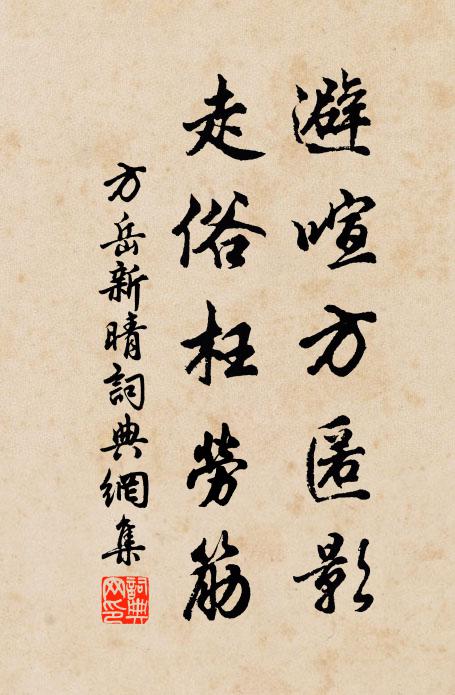 避喧方匿影
走俗枉勞筋
方岳新晴詞典網集
詞典網印